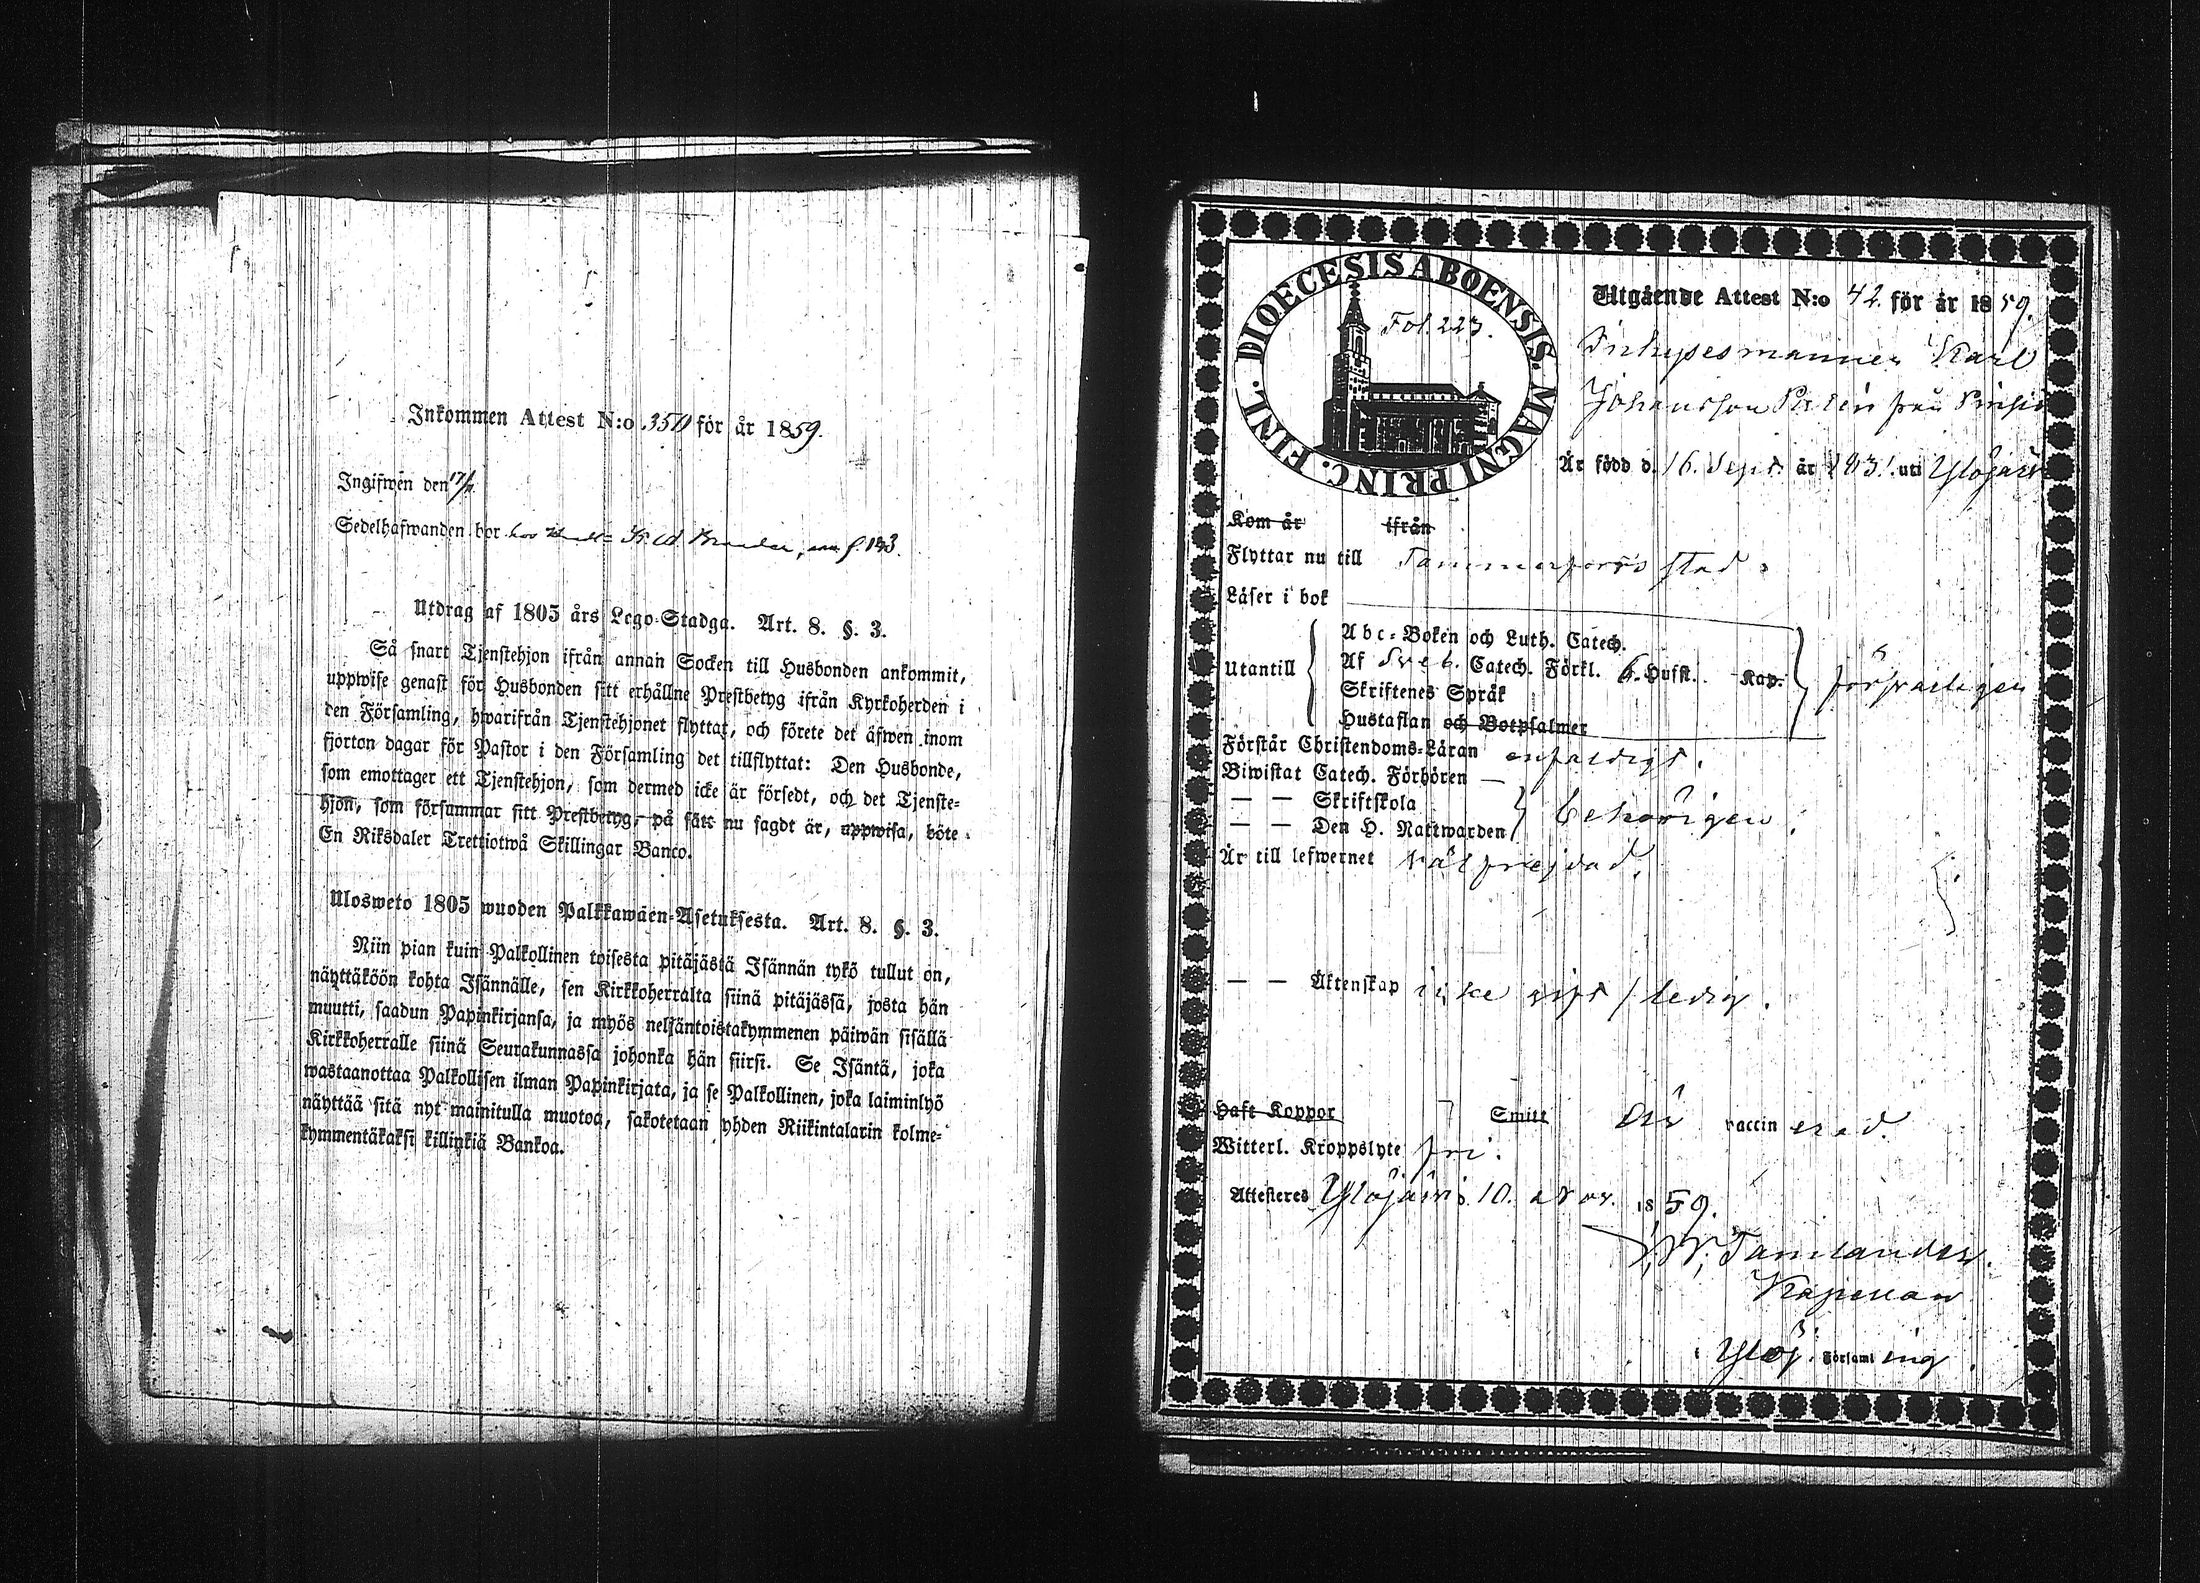 Inkommen Attest N:o 350 för år 1859.
Ingifwen den 17/11
Sedelhafwanden bor hos Fred. f. 143.
Utdrag af 1805 års Lego-Stadga. Art. 8. §. 3.
Så snart Tjenstehjon ifrån annan Socken till Husbonden ankommit,
uppwise genast för Husbonden sitt erhållne Prestbetyg ifrån Kyrkoherden i
den Församling, hwarifrån Tjenstehjonet flyttat, och förete det äfwen inom
fjorton dagar för Pastor i den Församling det tillflyttat: Den Husbonde,
som emottager ett Tjenstehjon, som dermed icke är försedt, och det Tjenste-
hjon, som försummar sitt Prestbetyg, på sätt nu sagdt är, uppwisa, böte
En Riksdaler Trettiotwå Skillingar Banco.
Ulosweto 1805 wuoden Palkkawäen-Asetuksesta. Art. 8. §. 3.
Niin pian kuin Palkollinen toisesta pitäjästä Isännän tykö tullut on,
näyttäköön kohta Isännälle, sen Kirkkoherralta siinä pitäjässä, josta hän
muutti, saadun Papinkirjansa, ja myös neljäntoistakymmenen päiwän sisällä
Kirkkoherralle siinä Seurakunnassa johonka hän siirsi. Se Isäntä, joka
wastaanottaa Palkollisen ilman Papinkirjata, ja se Palkollinen, joka laiminlyö
näyttää sitä nyt mainitulla muotoa, sakotetaan yhden Riikintalarin kolme-
kymmentäkaksi killinkiä Bankoa.
DIOECESIS ABOENSIS. MAGNI PRINC. FINL.
Fol. 223.
Utgående Attest N:o 42. för år 1859.
Inhysesmannen Karl
Johansson från
Är född d. 16. Sept. år 1831. uti Ylöjärvi
Kom år ifrån
Flyttar nu till Tammerfors stad.
Läser i bok
Utantill
Abc-Boken och Luth. Catech.
Af Sveb. Catech. Förkl. 6. Hufst. Kap.
Skriftenes Språk
Hustaflan och Botpsalmer
försvarligen
Förstår Christendoms-Läran enfaldigt.
Biwistat Catech. Förhören —
— — Skriftskola
— — Den H. Nattwarden
behörigen.
Är till lefwernet välfrejdad.
— — Äktenskap icke gift / ledig.
Haft Koppor Smitt Är vaccinerad.
Witterl. Kroppslyte fri.
Attesteres Ylöjärvi 10. Nov. 1859.
Tamlander.
Kapellan
i Ylöj. Församling.